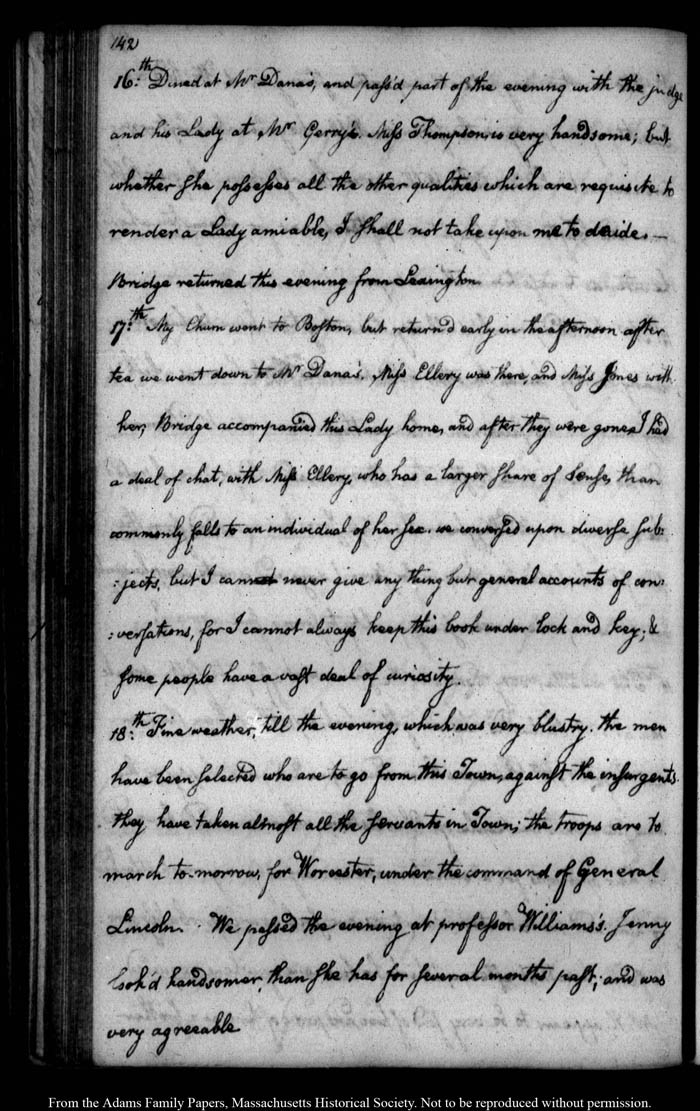 142
16:th Dined at Mr Dana's, and pass'd part of the evening with the judge
and his Lady at Mr Gerry's. Miss Thompson, is very handsome; but
whether she possesses all the other qualities which are requisite to
render a Lady amiable, I shall not take upon me to decide.—
Bridge returned this evening from Lexington.
17:th My Chum went to Boston, but return'd early in the afternoon after
tea we went down to Mr Dana's. Miss Ellery was there, and Miss Jones with
her, Bridge accompanied this Lady home, and after they were gone, I had
a deal of chat, with Miss Ellery, who has a larger share of sense, than
commonly falls to an individual of her sex. we conversed upon diverse sub:
:jects, but I can never give any thing but general accounts of con:
:versations, for I cannot always keep this book under lock and key; &
some people have a vast deal of curiosity.
18:th Fine weather, till the evening, which was very blustry. the men
have been selected who are to go from this Town, against the insurgents.
they have taken almost all the servants in Town; the troops are to
march to-morrow, for Worcester, under the command of General
Lincoln. We passed the evening at professor Williams's. Jenny
look'd handsomer, than she has for several months past; and was
very agreeable
From the Adams Family Papers, Massachusetts Historical Society. Not to be reproduced without permission.